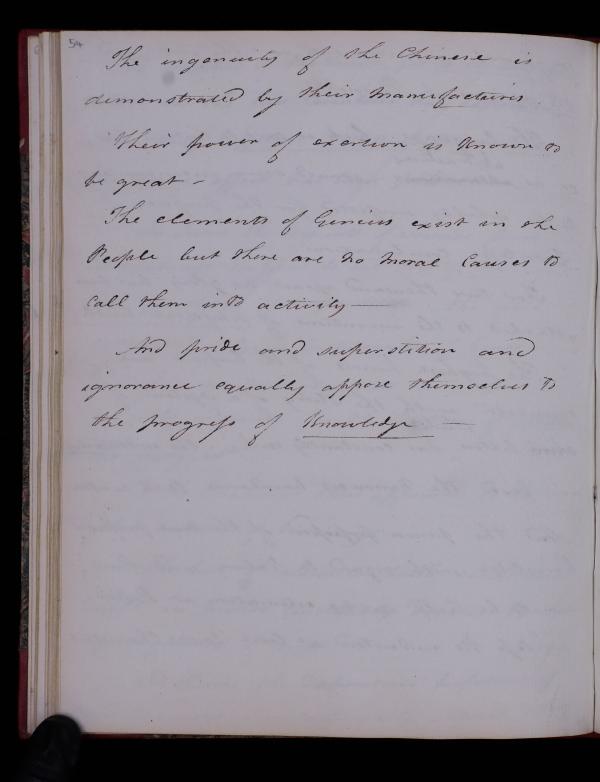 54
The ingenuity of the Chinese is
demonstrated by their manufactures
Their power of exertion is known to
be great -
The elements of Genius exist in the
People but there are no moral Causes to
Call them into activity —
And pride and superstition and
ignorance equally oppose themselves to
the progress of Knowledge —